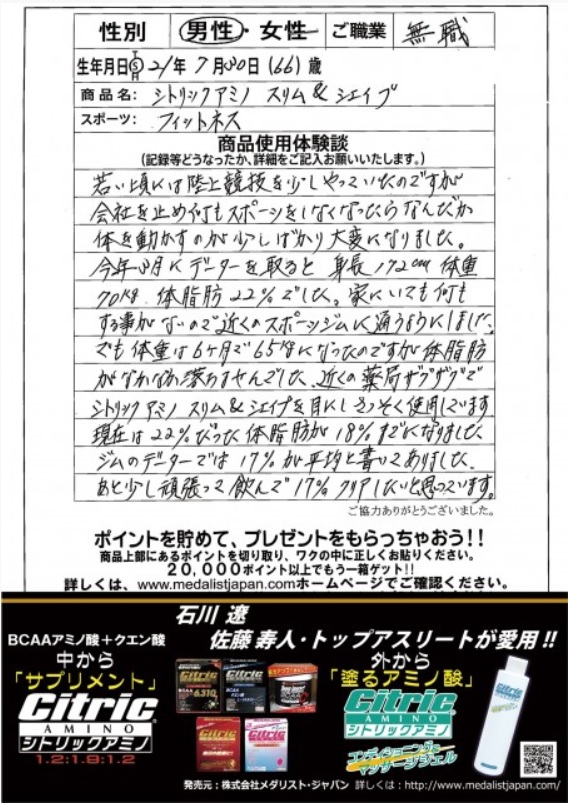 性別 男性・女性 ご職業 無職
生年月日 S 21年 7月30日 (66) 歳
商品名: シトリックアミノ スリム&シェイプ
スポーツ: フィットネス
商品使用体験談
(記録等どうなったか、詳細をご記入お願いいたします。)
若い頃には陸上競技を少しやっていたのですが
会社を止め何もスポーツをしなくなったらなんだか
体を動かすのが少しばかり大変になりました。
今年3月にデーターを取ると 身長172cm 体重
70kg 体脂肪22%でした。家にいても何も
する事がないので近くのスポーツジムに通うようにしました。
でも体重は6ヶ月で65kgになったのですが体脂肪
がなかなか落ちませんでした。近くの薬局ザグザグで
シトリックアミノ スリム&シェイプを目にしさっそく使用しています
現在は22%だった体脂肪が18%までになりました。
ジムのデーターでは17%が平均と書いてありました。
あと少し頑張って飲んで17%クリアしたいと思っています。
ご協力ありがとうございました。
ポイントを貯めて、プレゼントをもらっちゃおう!!
商品上部にあるポイントを切り取り、ワクの中に正しくお貼りください。
20,000ポイント以上でもう一箱ゲット!!
詳しくは、www.medalistjapan.comホームページでご確認ください。
石川 遼
佐藤 寿人・トップアスリートが愛用!!
BCAAアミノ酸+クエン酸
中から
「サプリメント」
Citric
AMINO
シトリックアミノ
1.2:1.9:1.2
外から
「塗るアミノ酸」
Citric
AMINO
シトリックアミノ
コンディショニング&
マッサージジェル
発売元:株式会社メダリスト・ジャパン 詳しくは:http://www.medalistjapan.com/